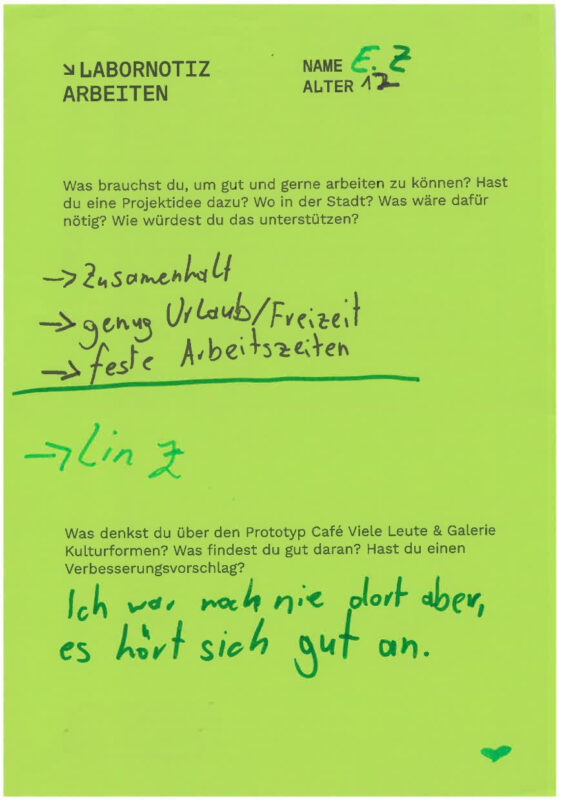 ↘ LABORNOTIZ
ARBEITEN
NAME E. Z
ALTER 12
Was brauchst du, um gut und gerne arbeiten zu können? Hast
du eine Projektidee dazu? Wo in der Stadt? Was wäre dafür
nötig? Wie würdest du das unterstützen?
→ Zusamenhalt
→ genug Urlaub/Freizeit
→ feste Arbeitszeiten
→ Lin Z
Was denkst du über den Prototyp Café Viele Leute & Galerie
Kulturformen? Was findest du gut daran? Hast du einen
Verbesserungsvorschlag?
Ich war noch nie dort aber,
es hört sich gut an.